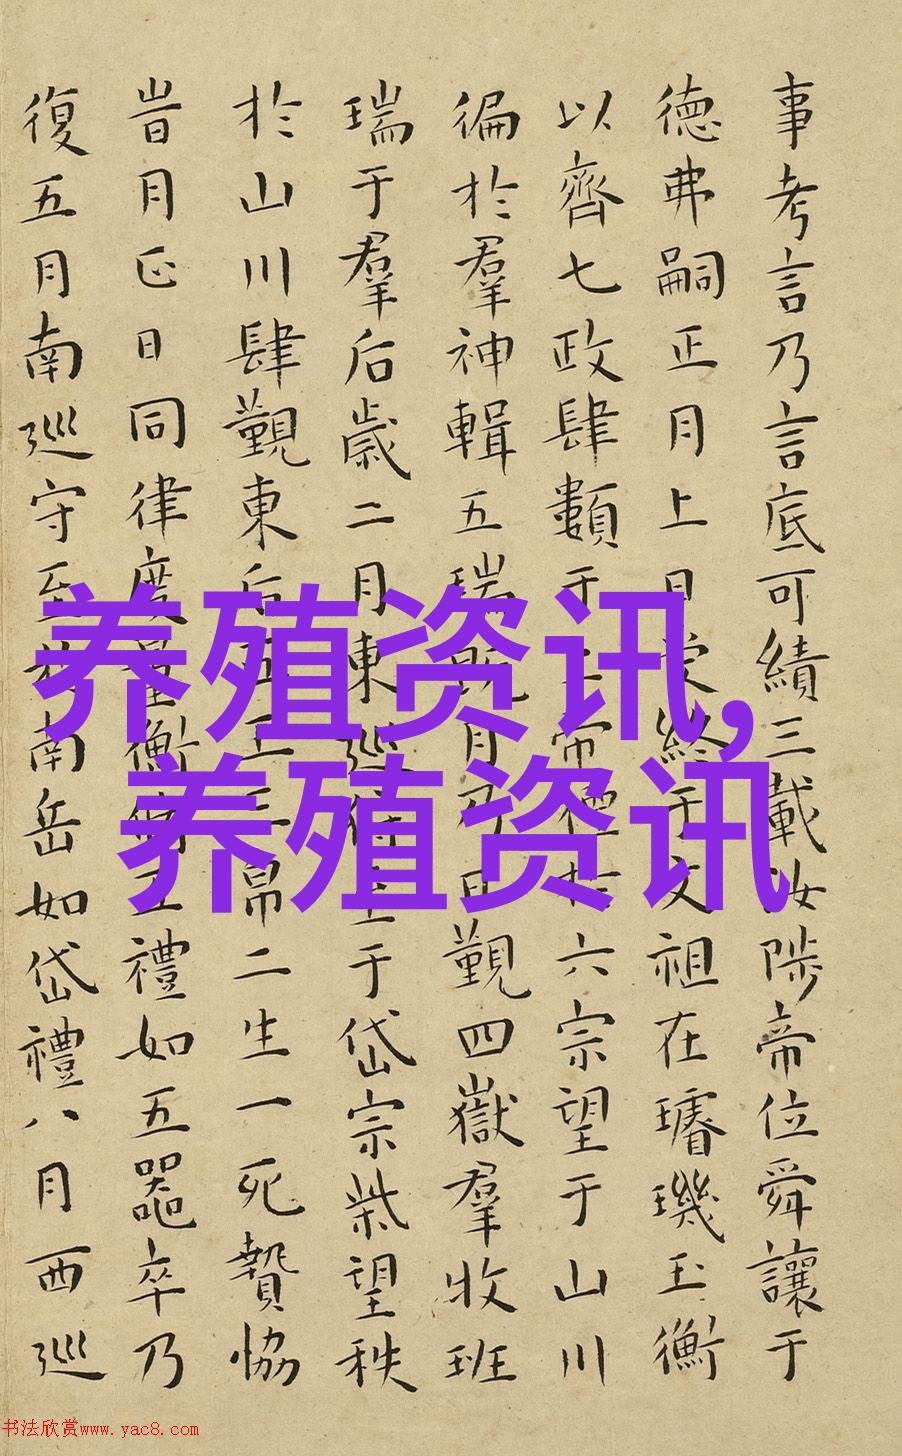 事考言乃言底可績三載汝陟帝位舜讓于
德弗嗣正月上日受終于文祖在璿璣玉衡
以齊七政肆類于上帝禋於六宗望于山川
徧於羣神輯五瑞既月乃日覲四嶽羣收班
瑞于羣后歲二月東巡狩至于岱宗柴望秩
於山川肆覲東后五玉三帛二生一死贄協
旹月正日同律度量衡脩五禮如五噐卒乃
復五月南巡守至於南岳如岱禮八月西巡
养殖资讯,
养殖资讯
书法欣赏www.yac8.com